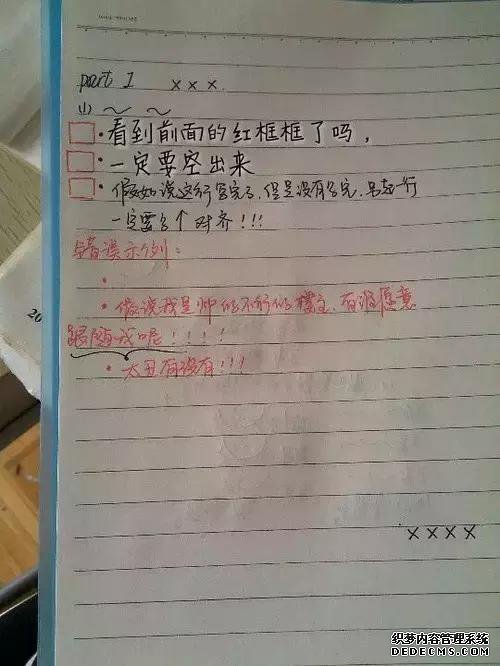 part 1 ×××
(1) ～ ～
□·看到前面的红框框了吗，
□·一定要空出来
□·假如说这行写完了，但是没有写完，另起一行
一定要多个对齐!!!
错误示例：
·
·假设我是帅的不行的楼主，有谁愿意
跟随我呢！！！！
·太丑有没有!!!
××××
织梦内容管理系统
DEDECMS.COM